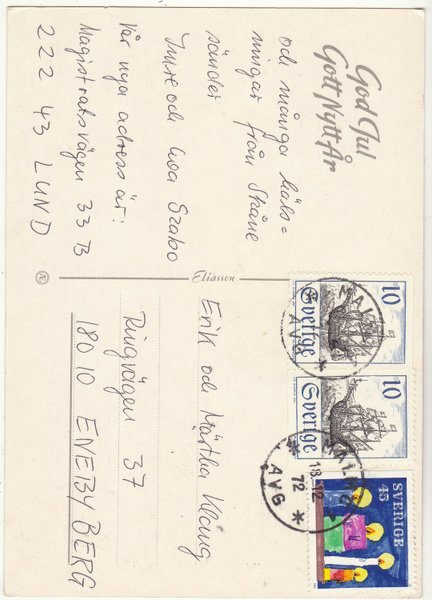 God Jul
Gott Nytt År
och många häls=
ningar från Skåne
sänder
Imre och Eva Szabo
Vår nya adress är:
Magistratsvägen 33 B
222 43 LUND
Eliasson
Erik och Märtha Kläning
Ringvägen 37
18010 ENEBYBERG
10
Sverige
10
Sverige
SVERIGE
45
MALMÖ
AVG
MALMÖ
18.12
72
AVG